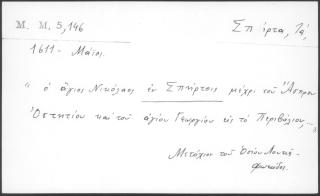 M. M. 5, 146
Σπάρτα, Τά,
1611 - Μάϊος.
"ὁ ἅγιος Νικόλαος ἐν Σπάρτοις μέχρι τοῦ Ἄσπρου
Ὀσπητίου καὶ τοῦ ἁγίου Γεωργίου εἰς τὸ Περιβόλιον,-"
Μετόχιον τοῦ Ὁσίου Λουκᾶ
Φωκίδος.